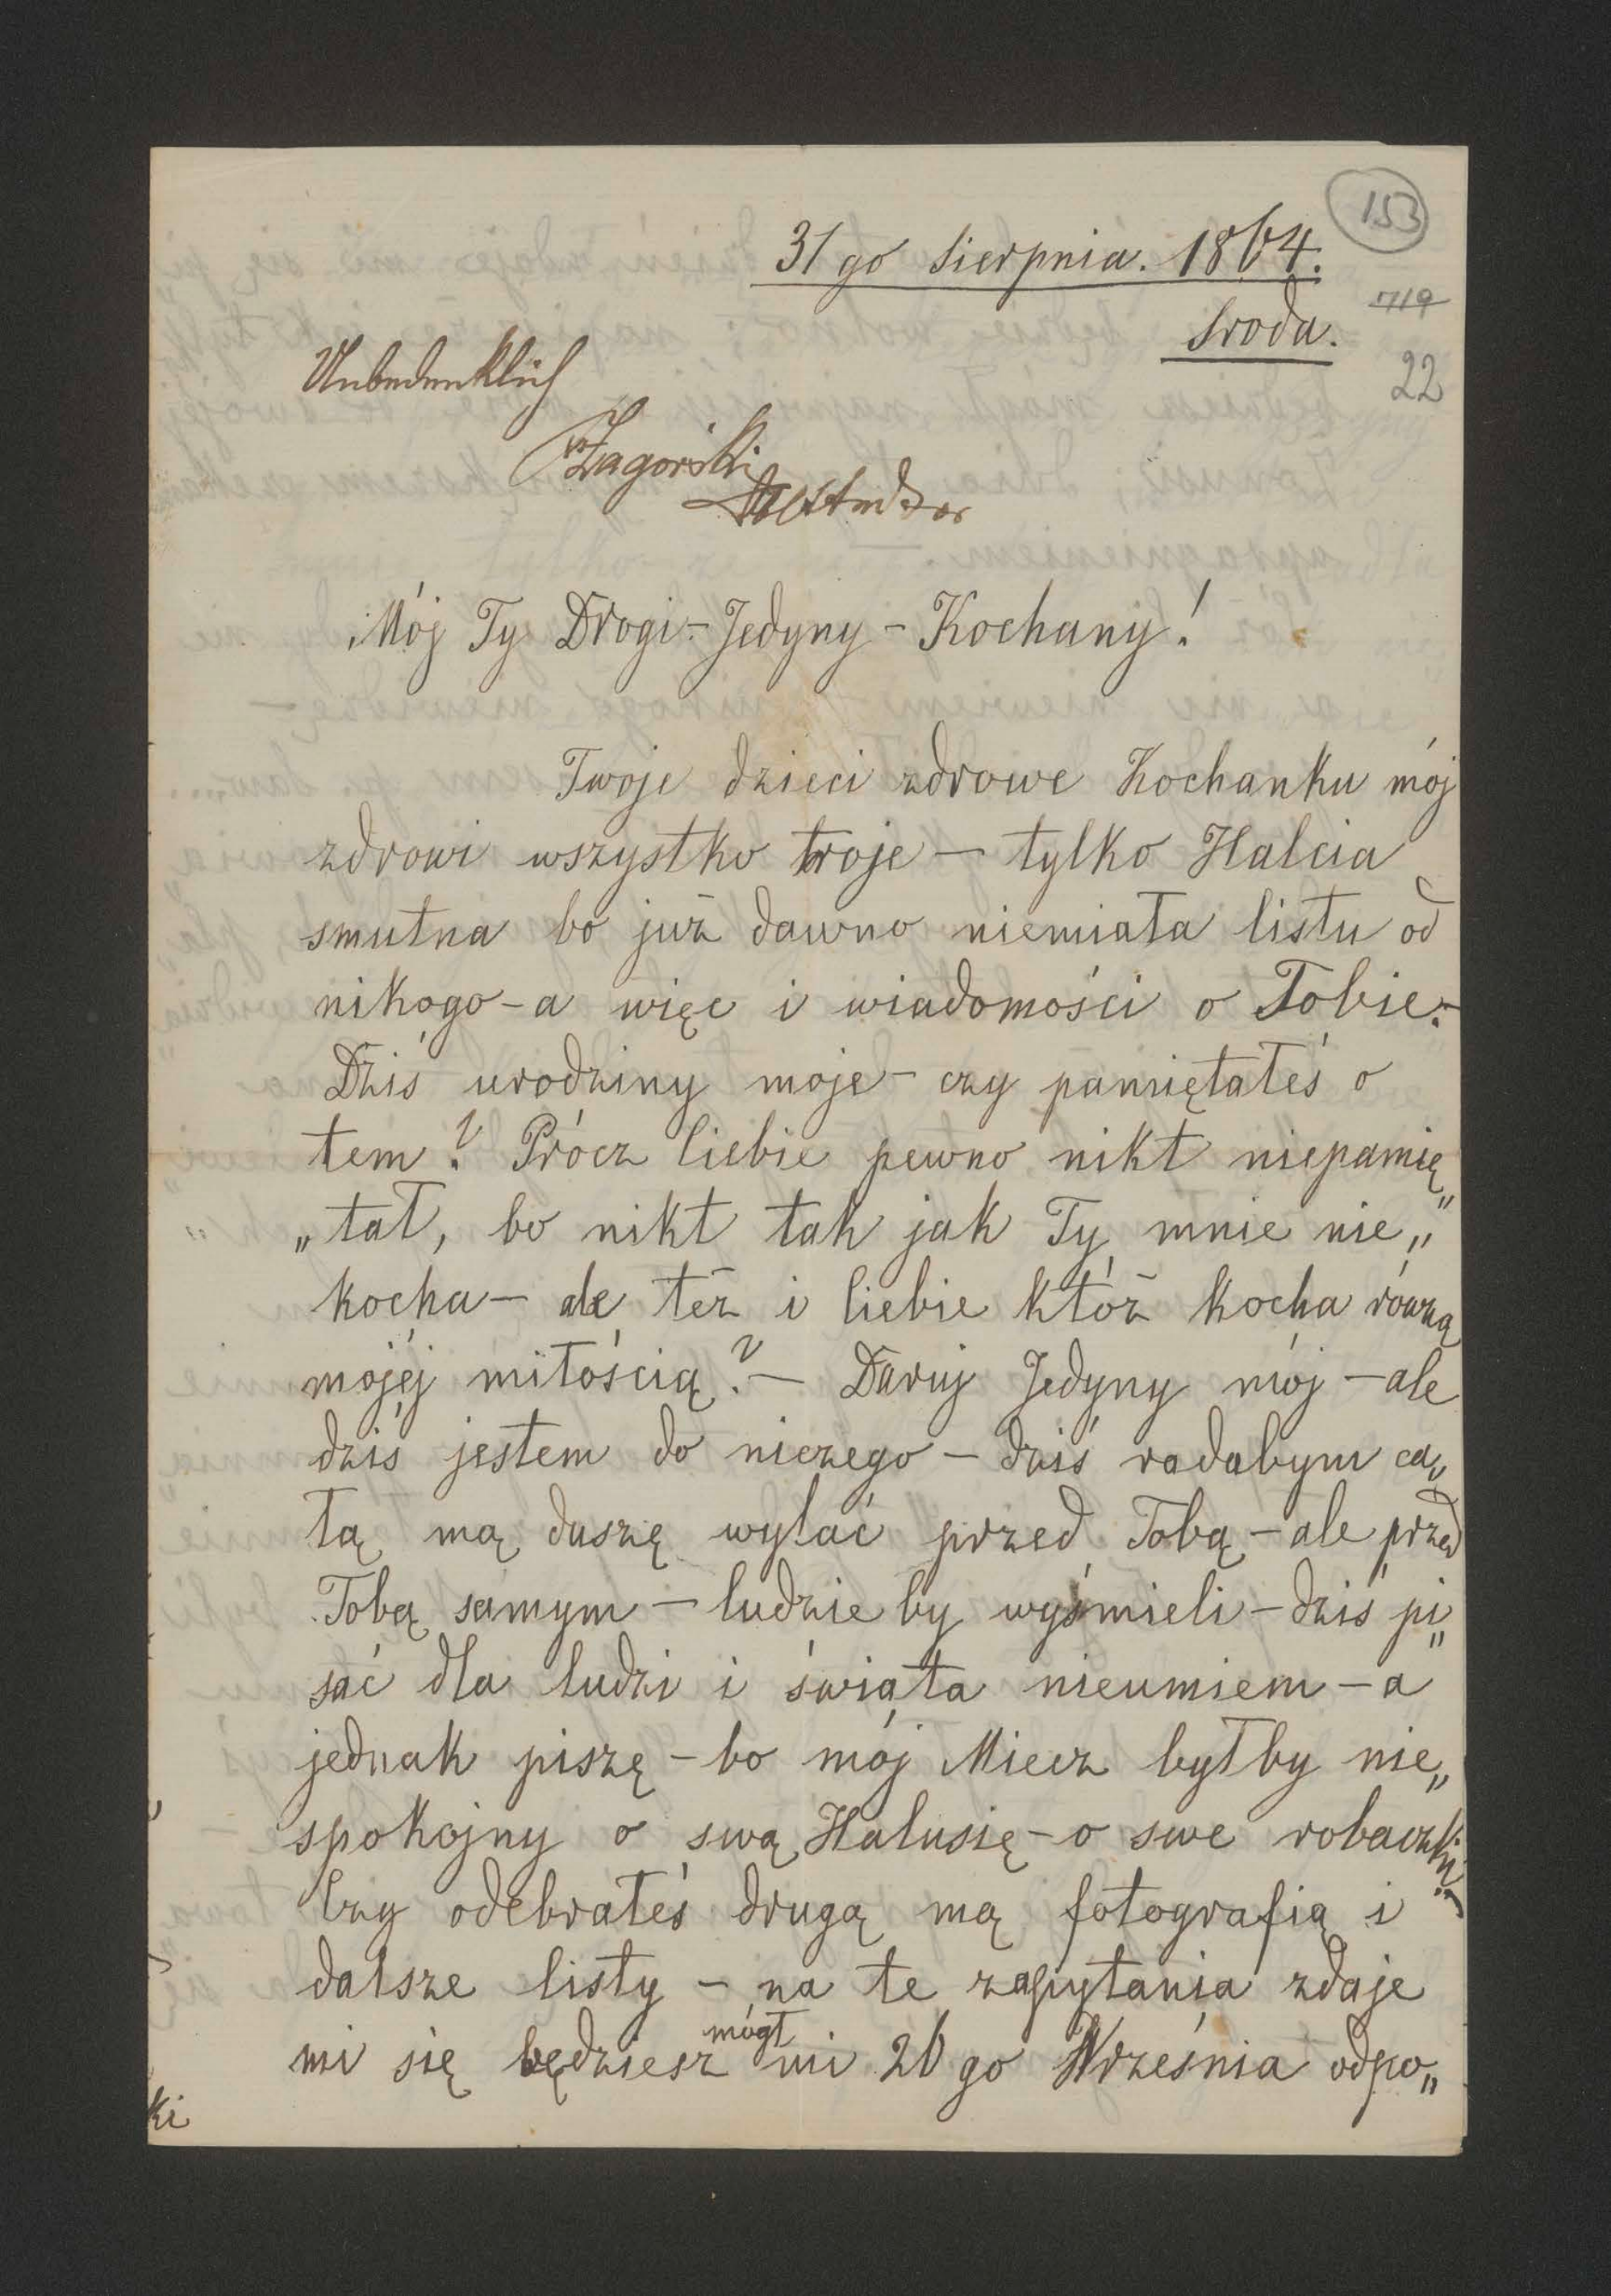 153
31 go Sierpnia. 1864.
719
Środa.
22
Unbedenklich
Zagórski
Mój Ty Drogi - Jedyny - Kochany!
Twoje dzieci zdrowe Kochanku mój
zdrowi wszystko troje — tylko Halcia
smutna bo już dawno niemiała listu od
nikogo - a więc i wiadomości o Tobie. -
Dziś urodziny moje - czy pamiętałeś o
tem? Prócz Ciebie pewno nikt niepamię„
„tał, bo nikt tak jak Ty mnie nie„
kocha — ale też i Ciebie któż kocha równą
mojéj miłością? — Daruj Jedyny mój — ale
dziś jestem do niczego — dziś radabym ca„
łą mą duszę wylać przed Tobą — ale przed
Tobą samym — ludzie by wyśmieli — dziś pi„
sać dla ludzi i świata nieumiem — a
jednak piszę — bo mój Miecz byłby nie„
spokojny o swą Halusię - o swe robaczki. —
Czy odebrałeś drugą mą fotografią i
dalsze listy — na te zapytania zdaje
mi się będziesz mógł mi 26 go Września odpo„
ki